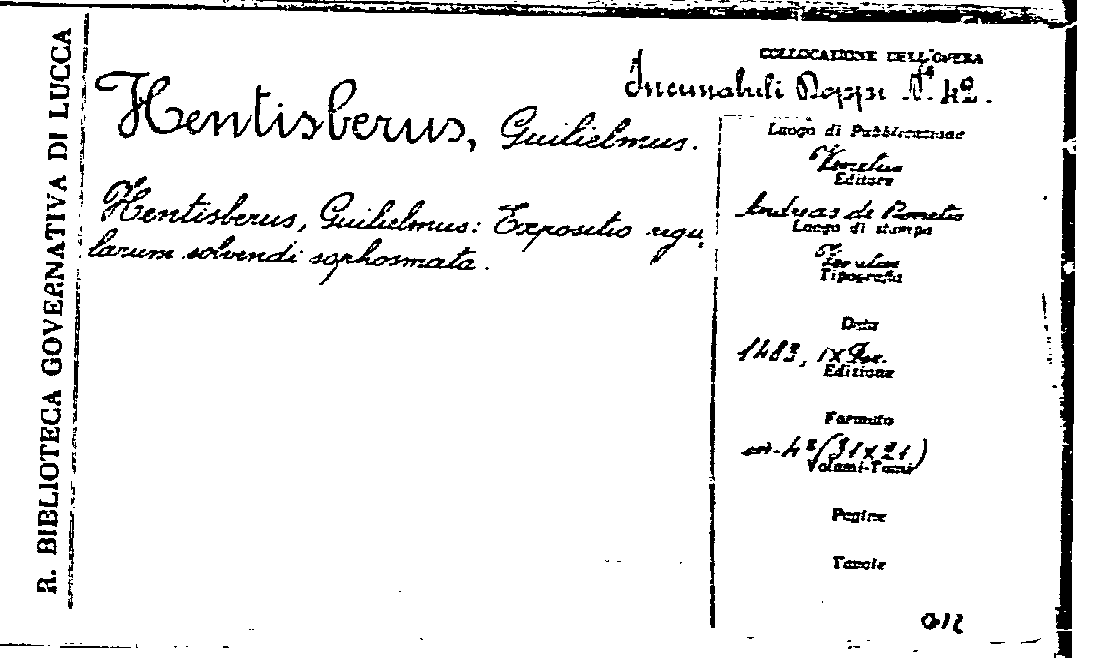 R. BIBLIOTECA GOVERNATIVA DI LUCCA
Hentisberus, Guilielmus.
Hentisberus, Guilielmus: Expositio regu,
larum solvendi sophosmata.
COLLOCAZIONE DELL'OPERA
Incunabuli Doppi N.° 42.
Luogo di Pubblicazione
Venetiis
Editore
Andreas de Bonetis
Luogo di stampa
Venetiis
Tipografia
Data
1483, IX
Edizione
Formato
in-4° (31x21)
Volumi-Tomi
Pagine
Tavole